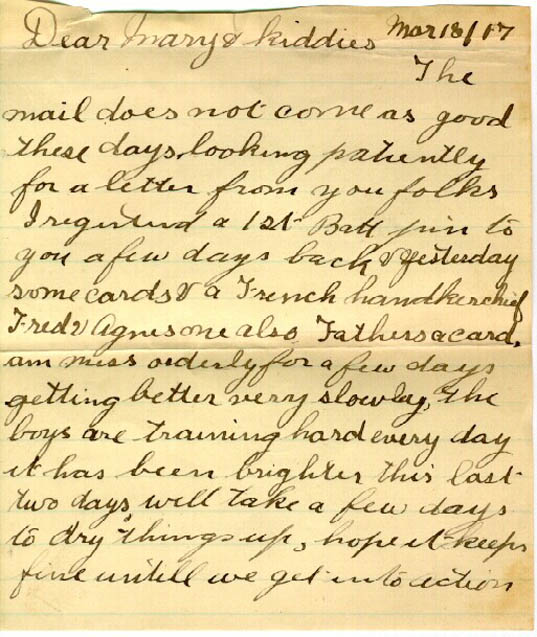 Dear Mary & kiddies Mar 18/17
The
mail does not come as good
these days, looking patiently
for a letter from you folks
I registerd a 1st Batt pin to
you a few days back & yesterday
some cards & a French handkerchief
Fred & Agnes one also Fathers a card,
am mess orderly for a few days
getting better verry slowley, the
boys are training hard every day
it has been brighter this last
two days, will take a few days
to dry things up, hope it keeps
fine untill we get into action